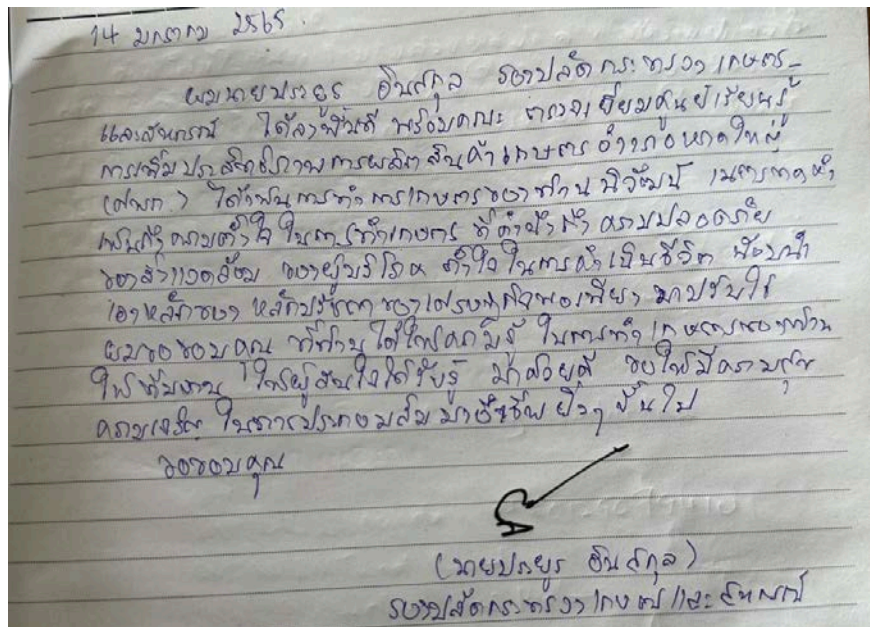 14 มกราคม 2565.
ผมนายประยูร อินสกุล รองปลัดกระทรวงเกษตร-
และสหกรณ์ ได้ลงพื้นที่ พร้อมคณะ ตรวจเยี่ยมศูนย์เรียนรู้
การเพิ่มประสิทธิภาพการผลิตสินค้าเกษตร อำเภอหาดใหญ่
(ศพก.) ได้เห็นการทำการเกษตรของท่าน
เห็นถึงความตั้งใจ ในการทำเกษตร ที่คำนึงถึง ความปลอดภัย
ของสิ่งแวดล้อม ของผู้บริโภค ตั้งใจในการดำเนินชีวิต น้อมนำ
เอาหลักของ หลักปรัชญาของเศรษฐกิจพอเพียง มาปรับใช้
ผมขอขอบคุณ ที่ท่านได้ให้ความรู้ ในการทำเกษตรของท่าน
ให้ทีมงาน ให้ผู้สนใจได้รับรู้ มาด้วยดี ขอให้มีความสุข
ความเจริญ ในการประกอบสัมมาอาชีพยิ่งๆ ขึ้นไป
ขอขอบคุณ
(นายประยูร อินสกุล)
รองปลัดกระทรวงเกษตรและสหกรณ์